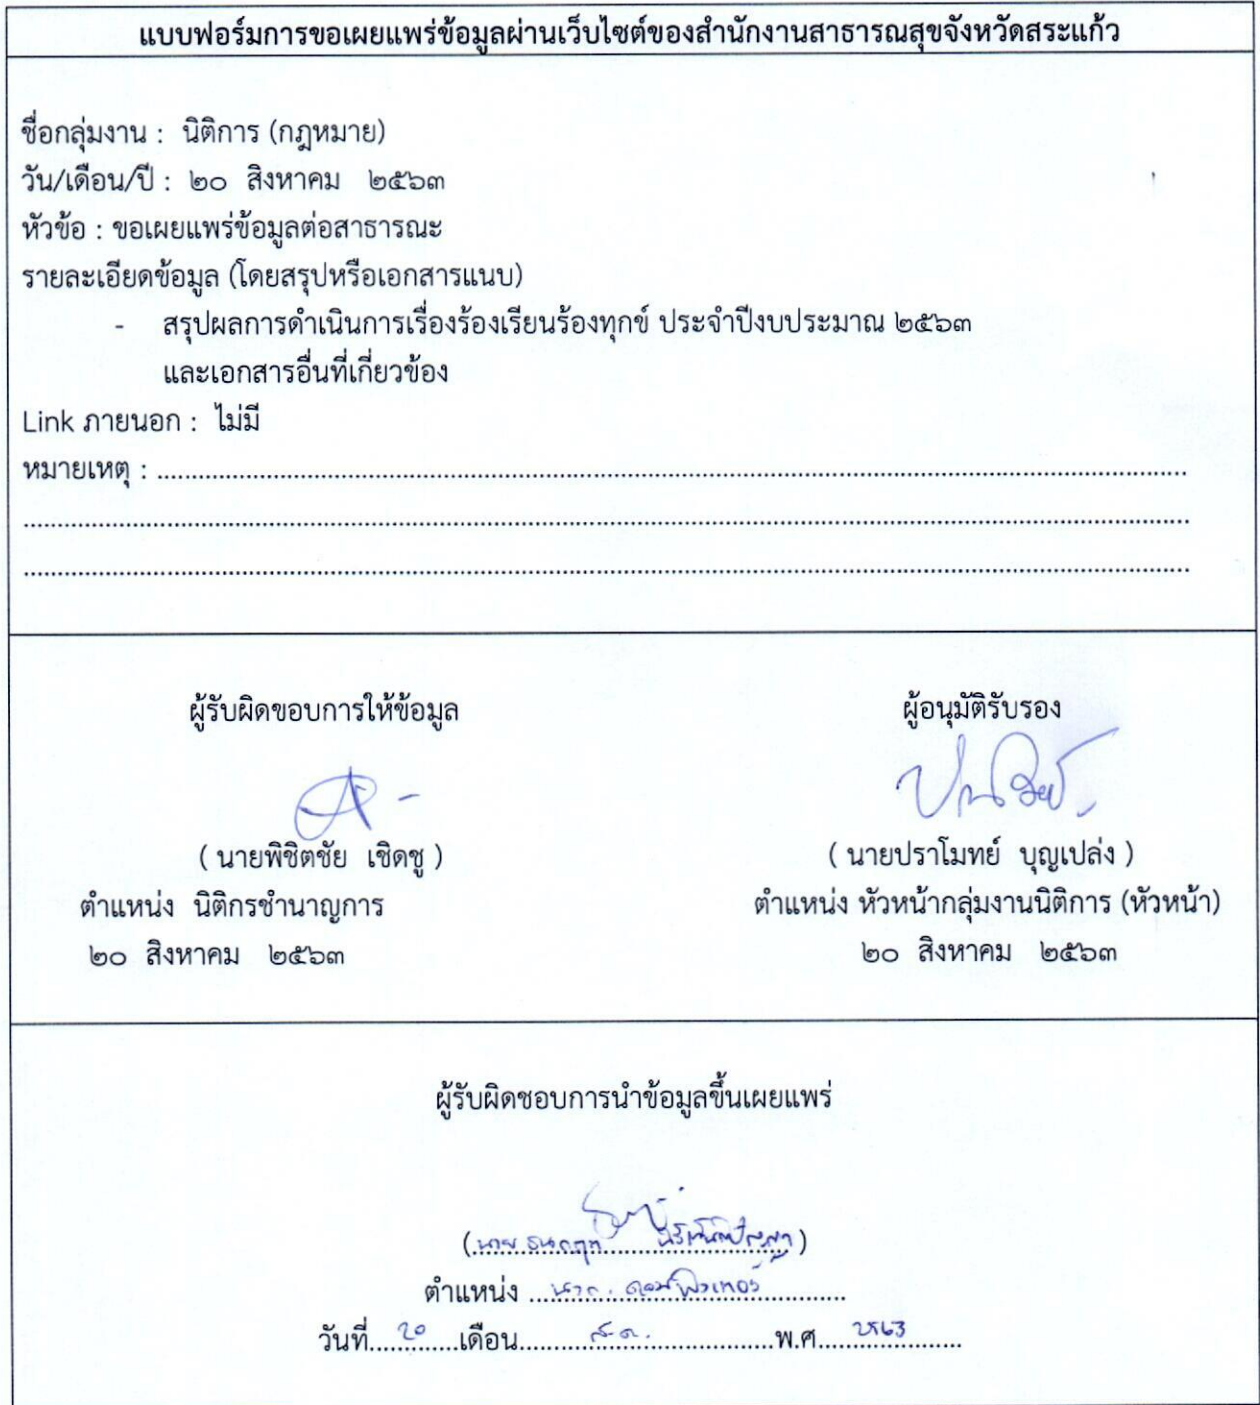 แบบฟอร์มการขอเผยแพร่ข้อมูลผ่านเว็บไซต์ของสำนักงานสาธารณสุขจังหวัดสระแก้ว
ชื่อกลุ่มงาน : นิติการ (กฎหมาย)
วัน/เดือน/ปี : ๒๐ สิงหาคม ๒๕๖๓
หัวข้อ : ขอเผยแพร่ข้อมูลต่อสาธารณะ
รายละเอียดข้อมูล (โดยสรุปหรือเอกสารแนบ)
- สรุปผลการดำเนินการเรื่องร้องเรียนร้องทุกข์ ประจำปีงบประมาณ ๒๕๖๓
และเอกสารอื่นที่เกี่ยวข้อง
Link ภายนอก : ไม่มี
หมายเหตุ :
ผู้รับผิดขอบการให้ข้อมูล
( นายพิชิตชัย เชิดชู )
ตำแหน่ง นิติกรชำนาญการ
๒๐ สิงหาคม ๒๕๖๓
ผู้อนุมัติรับรอง
( นายปราโมทย์ บุญเปล่ง )
ตำแหน่ง หัวหน้ากลุ่มงานนิติการ (หัวหน้า)
๒๐ สิงหาคม ๒๕๖๓
ผู้รับผิดชอบการนำข้อมูลขึ้นเผยแพร่
(นาย ธนกฤต )
ตำแหน่ง นวก. คอมพิวเตอร์
วันที่ 20 เดือน ส.ค. พ.ศ 2563